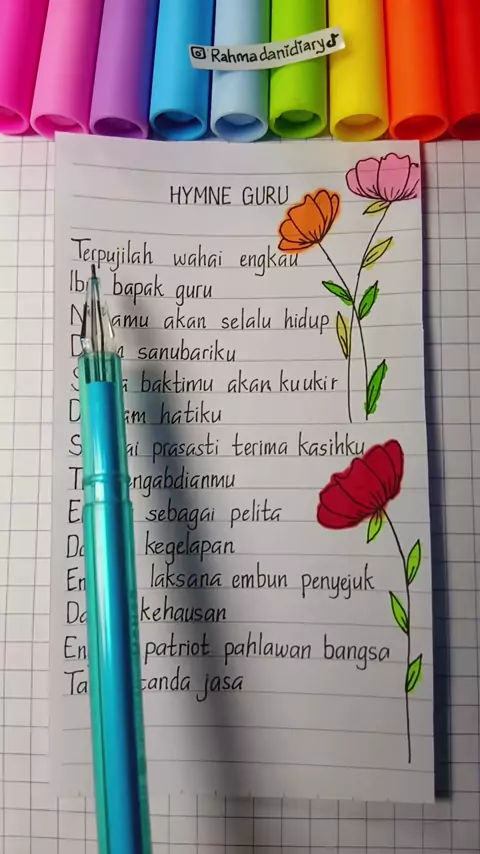 Rahmadanidiary
HYMNE GURU
Terpujilah wahai engkau
Ibu bapak guru
akan selalu hidup
sanubariku
baktimu akan kuukir
hatiku
prasasti terima kasihku
pengabdianmu
sebagai pelita
kegelapan
laksana embun penyejuk
kehausan
patriot pahlawan bangsa
tanda jasa